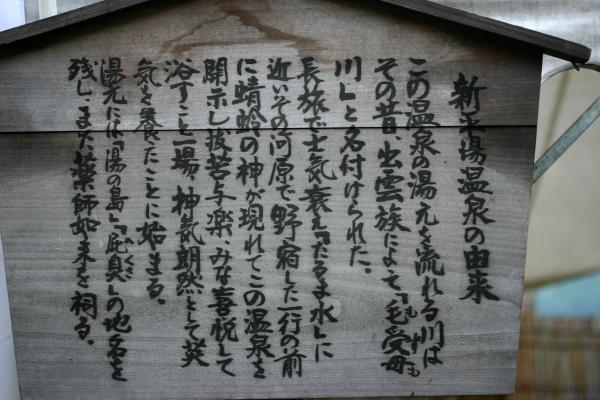 新平湯温泉の由来
この温泉の湯元を流れる川は
その昔出雲族によって「毛受母
もずも
川」と名付けられた。
長旅で士気衰え「たるま水」に
近いその河原で野宿した一行の前
に蜻蛉の神が現れてこの温泉を
開示し抜苦与楽、みな喜悦して
浴すこと一場、神気朗然として英
気を養ったことに始まる。
湯元には「湯の島」「屁臭」の地名を
へくさ
残し、また薬師如来を祠る。